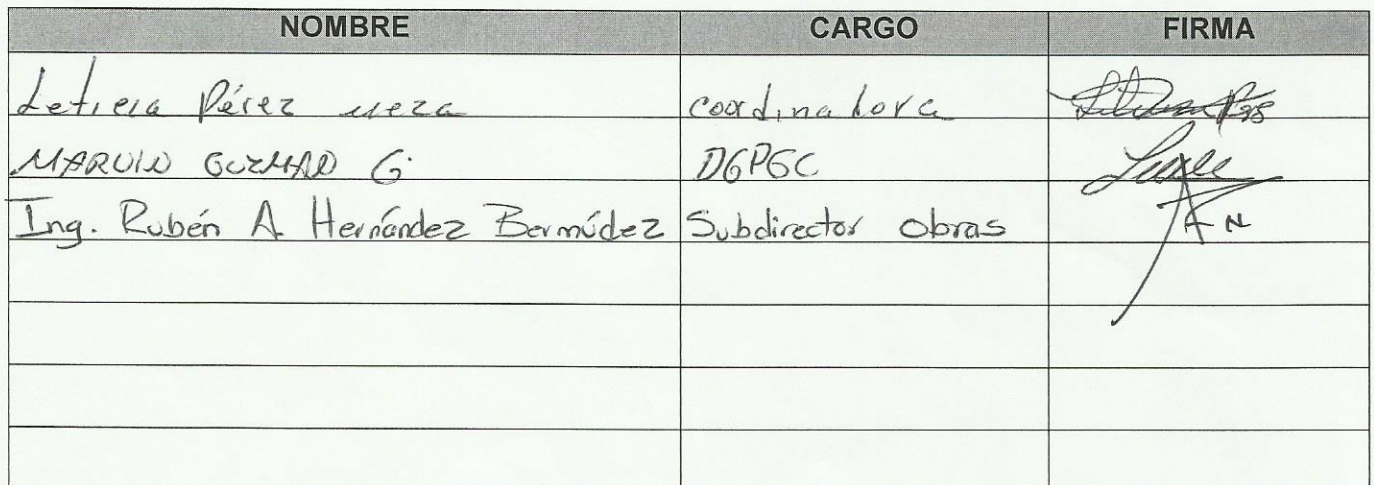 NOMBRE CARGO FIRMA
Leticia Pérez Meza coordinadora
MARVIN GUZMAN G. DGPGC
Ing. Rubén A. Hernández Bermúdez Subdirector Obras